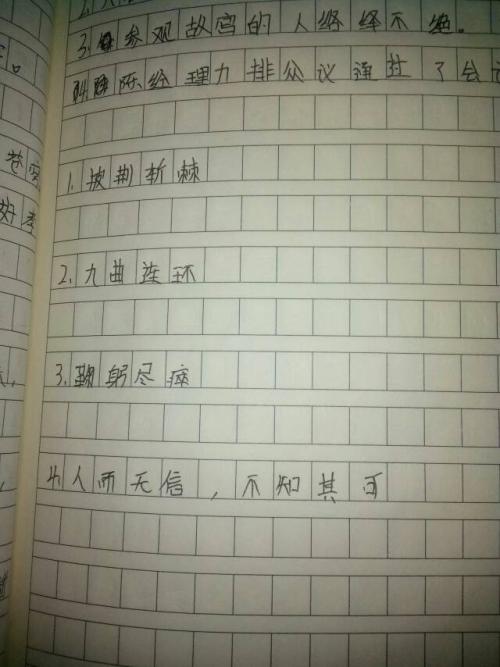 3.参观故宫的人络绎不绝。
陈经理力排众议通过了会
1.披荆斩棘
2.九曲连环
3.鞠躬尽瘁
4.人而无信，不知其可
苍穹
好